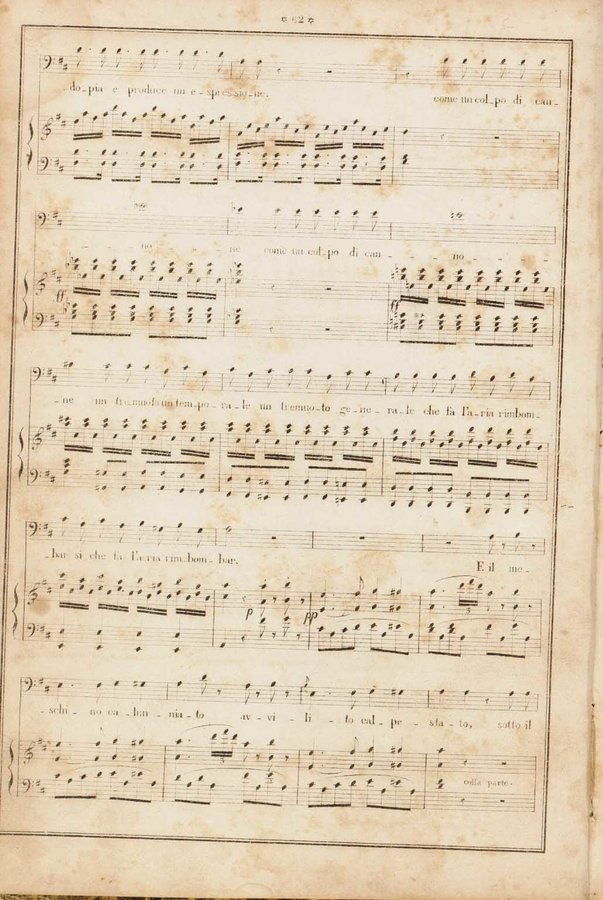 52
do_pia e produce un e_spressio_ne. come un col_po di can_
no ne come un col_po di can_ no
ff ff
ne un tremuoto un tem_po_ra_le un tremuo_to ge_ne_ra_le che fa l'a_ria rimbom_
bar si che fa l'a_ria rim_bom_bar. E il me_
p pp
3
_schi_no ca_lun_nia_to av_vi_li_to cal_pe_sta_to, sotto il
3
colla parte.